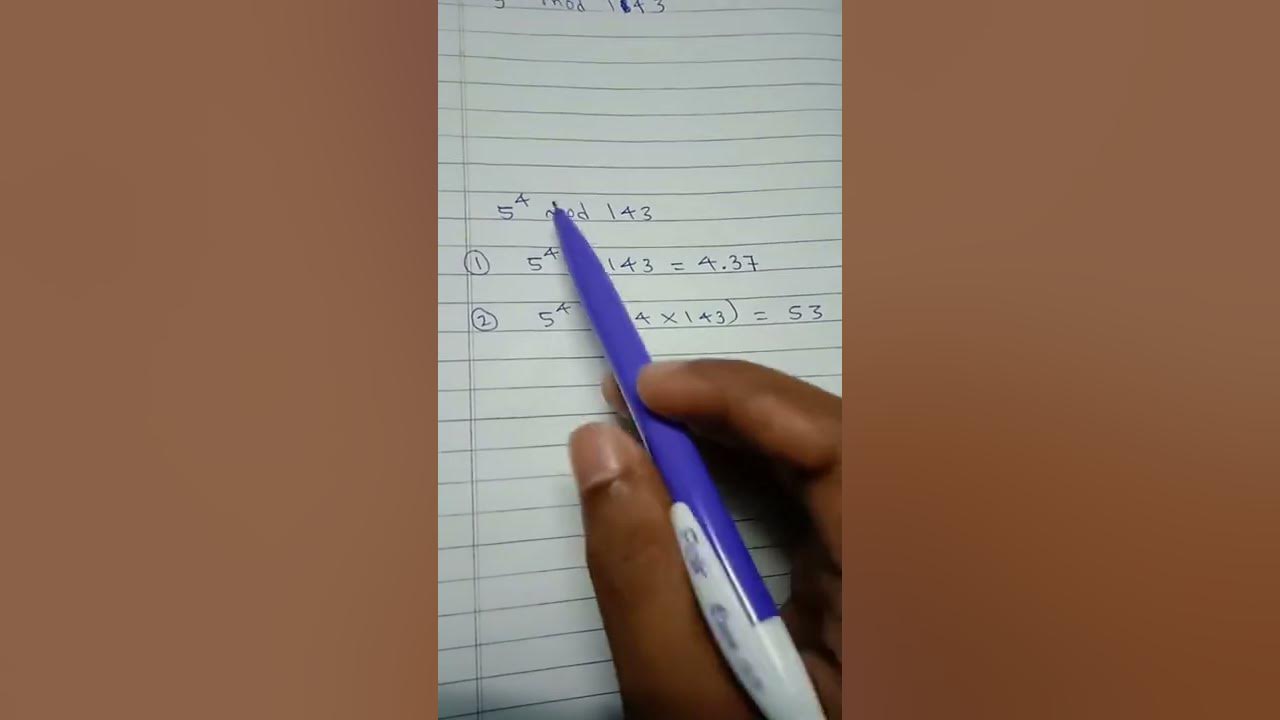 mod 143
5⁴ mod 143
① 5⁴ 143 = 4.37
② 5⁴ 4 × 143) = 53